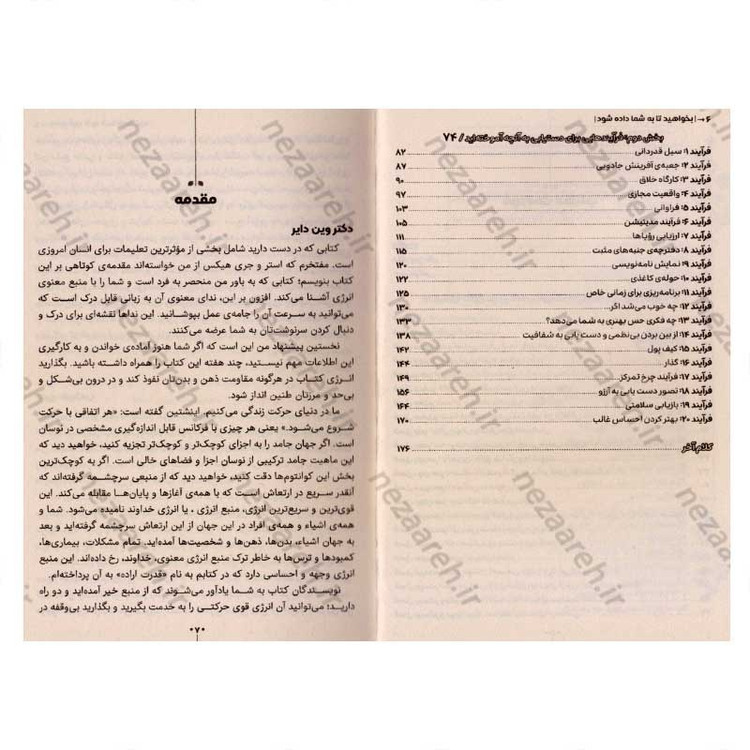 ۶ → | بخواهید تا به شما داده شود |
بخش دوم: فرآیندهایی برای دستیابی به آنچه آموخته‌اید / ۷۴
فرآیند ۱: سیل قدردانی ۸۲
فرآیند ۲: جعبه‌ی آفرینش جادویی ۸۷
فرآیند ۳: کارگاه خلاق ۹۰
فرآیند ۴: واقعیت مجازی ۹۷
فرآیند ۵: فراوانی ۱۰۳
فرآیند ۶: فرآیند مدیتیشن ۱۰۵
فرآیند ۷: ارزیابی رؤیاها ۱۱۱
فرآیند ۸: دفترچه‌ی جنبه‌های مثبت ۱۱۵
فرآیند ۹: نمایش نامه‌نویسی ۱۲۰
فرآیند ۱۰: حوله‌ی کاغذی ۱۲۲
فرآیند ۱۱: برنامه‌ریزی برای زمانی خاص ۱۲۵
فرآیند ۱۲: چه خوب می‌شد اگر ۱۳۰
فرآیند ۱۳: چه فکری حس بهتری به شما می‌دهد؟ ۱۳۳
فرآیند ۱۴: از بین بردن بی‌نظمی و دست یابی به شفافیت ۱۳۸
فرآیند ۱۵: کیف پول ۱۴۲
فرآیند ۱۶: گذار ۱۴۴
فرآیند ۱۷: فرآیند چرخ تمرکز ۱۴۹
فرآیند ۱۸: تصور دست یابی به آرزو ۱۵۶
فرآیند ۱۹: بازیابی سلامتی ۱۶۴
فرآیند ۲۰: بهتر کردن احساس غالب ۱۶۷
کلام آخر ۱۷۶
مقدمه
دکتر وین دایر
کتابی که در دست دارید شامل بخشی از مؤثرترین تعلیمات برای انسان امروزی
است. مفتخرم که استر و جری هیکس از من خواسته‌اند مقدمه‌ی کوتاهی بر این
کتاب بنویسم؛ کتابی که به باور من منحصر به فرد است و شما را با منبع معنوی
انرژی آشنا می‌کند. افزون بر این، ندای معنوی آن به زبانی قابل درک است که
می‌توانید به سرعت آن را جامه‌ی عمل بپوشانید. این نداها نقشه‌ای برای درک و
دنبال کردن سرنوشت‌تان به شما عرضه می‌کنند.
نخستین پیشنهاد من این است که اگر شما هنوز آماده‌ی خواندن و به کارگیری
این اطلاعات مهم نیستید، چند هفته این کتاب را همراه داشته باشید. بگذارید
انرژی کتاب در هرگونه مقاومت ذهن و بدن‌تان نفوذ کند و در درون بی‌شکل و
بی‌حد و مرزتان طنین انداز شود.
ما در دنیای حرکت زندگی می‌کنیم. اینشتین گفته است: «هر اتفاقی با حرکت
شروع می‌شود.» یعنی هر چیزی با فرکانس قابل اندازه‌گیری مشخصی در نوسان
است. اگر جهان جامد را به اجزای کوچک‌تر و کوچک‌تر تجزیه کنید، خواهید دید که
این ماهیت جامد ترکیبی از نوسان اجزا و فضاهای خالی است. اگر به کوچک‌ترین
بخش این کوانتوم‌ها دقت کنید، خواهید دید که از منبعی سرچشمه گرفته‌اند که
آنقدر سریع در ارتعاش است که با همه‌ی آغازها و پایان‌ها مقابله می‌کند. این
قوی‌ترین و سریع‌ترین انرژی، منبع انرژی ، یا انرژی خداوند نامیده می‌شود. شما و
همه‌ی اشیاء و همه‌ی افراد در این جهان از این ارتعاش سرچشمه گرفته‌اید و بعد
به جهان اشیاء، بدن‌ها، ذهن‌ها و شخصیت‌ها آمده‌اید. تمام مشکلات، بیماری‌ها،
کمبودها و ترس‌ها به خاطر ترک منبع انرژی معنوی، خداوند، رخ داده‌اند. این منبع
انرژی وجهه و احساسی دارد که در کتابم به نام «قدرت اراده» به آن پرداخته‌ام.
نویسندگان کتاب به شما یادآور می‌شوند که از منبع خیر آمده‌اید و دو راه
دارید؛ می‌توانید آن انرژی قوی حرکتی را به خدمت بگیرید و بگذارید بی‌وقفه در
۰۷۰
nezaareh.ir
nezaareh.ir
nezaareh.ir
nezaareh.ir
nezaareh.ir
nezaareh.ir